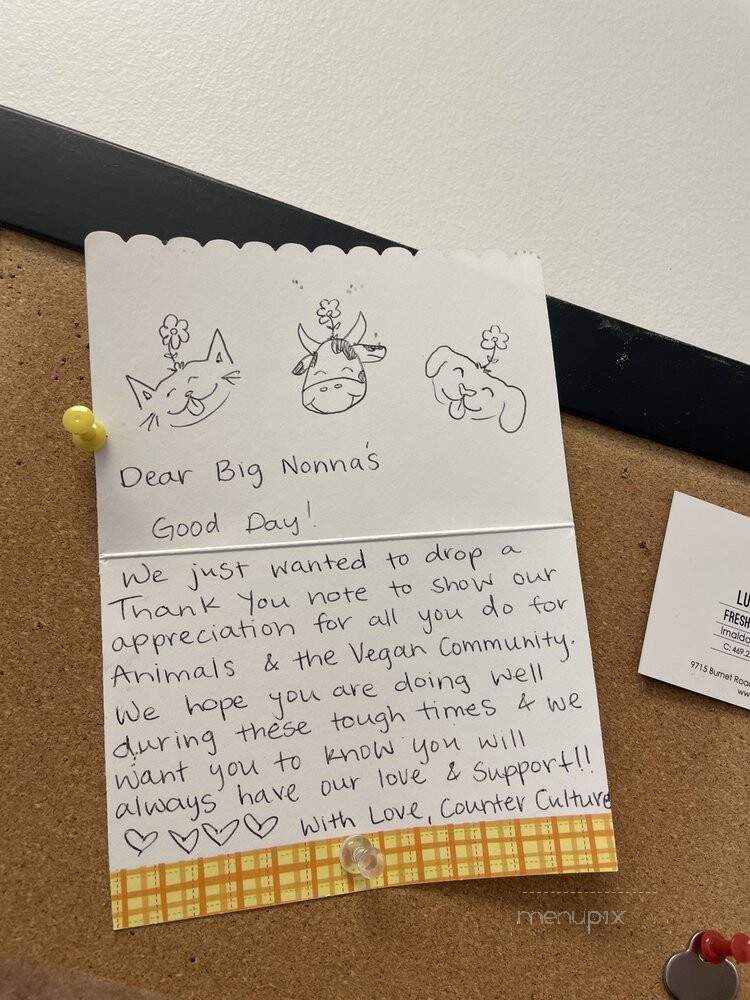 Dear Big Nonna's
Good Day!
We just wanted to drop a
Thank You note to show our
appreciation for all you do for
Animals & the Vegan Community.
We hope you are doing well
during these tough times & we
want you to know you will
always have our love & Support!!
With Love, Counter Culture
LU
FRESH
C: 469.2
9715 Burnet Road
ww
menupix